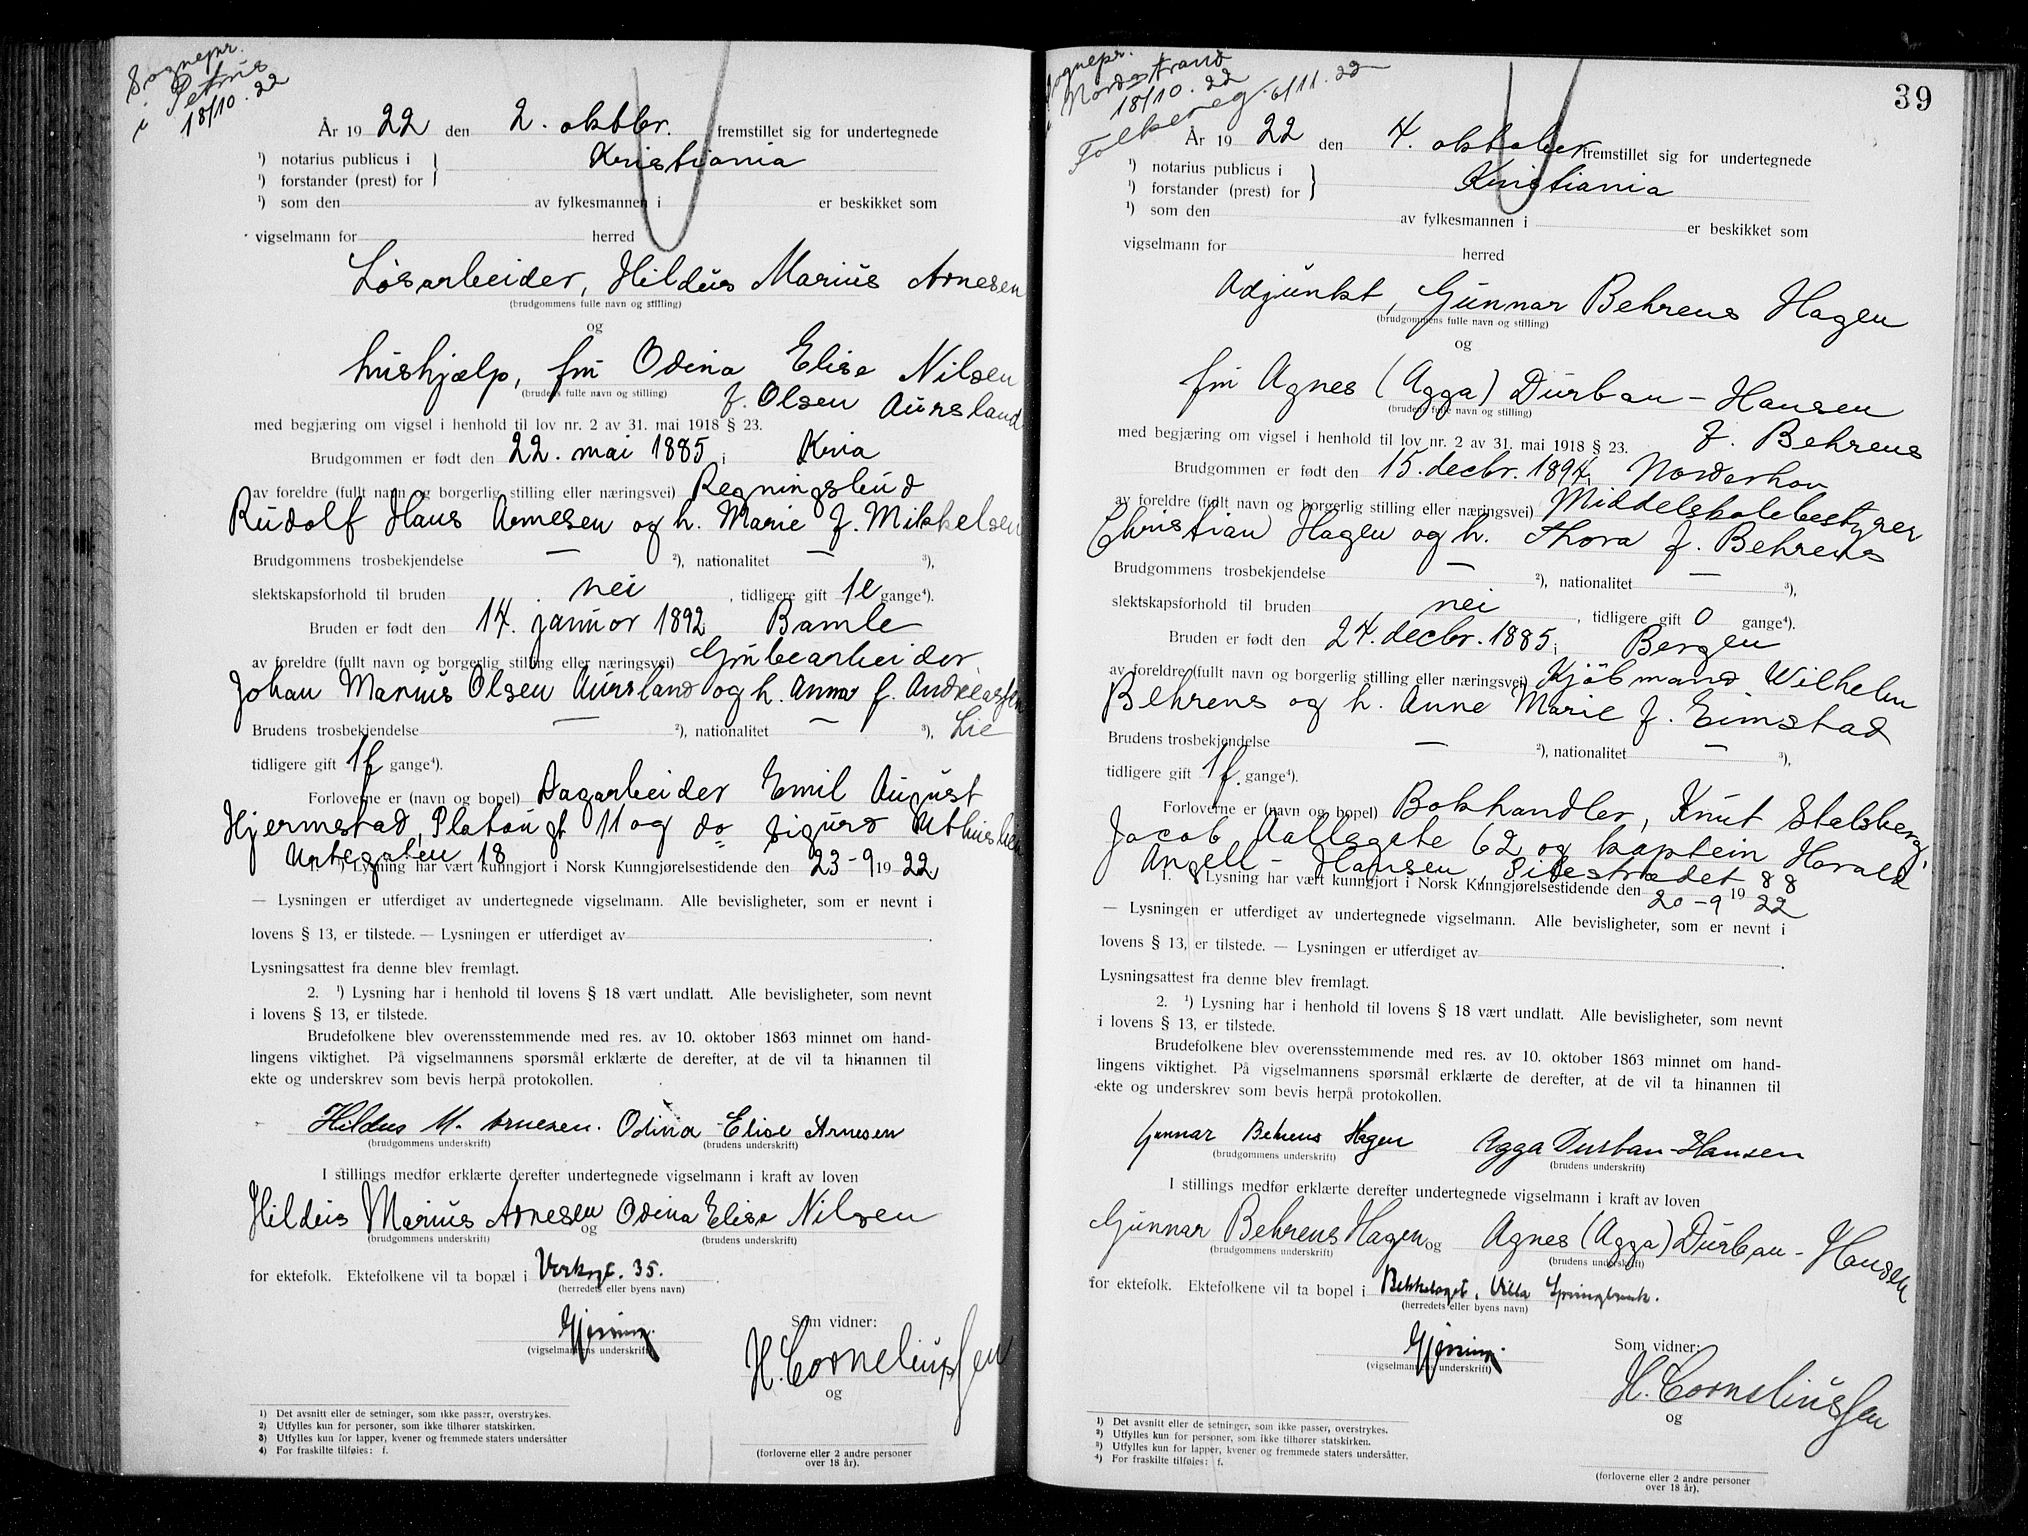 Sognepr.
i Petrus
18/10. 22
År 1922 den 2. oktbr. fremstillet sig for undertegnede
¹) notarius publicus i } Kristiania
¹) forstander (prest) for
¹) som den av fylkesmannen i er beskikket som
vigselmann for herred
Løsarbeider, Hildus Marius Arnesen
(brudgommens fulle navn og stilling)
og
hushjælp, fru Odina Elise Nilsen
(brudens fulle navn og stilling)
f. Olsen Aursland
med begjæring om vigsel i henhold til lov nr. 2 av 31. mai 1918 § 23.
Brudgommen er født den 22. mai 1885 i Kria
av foreldre (fullt navn og borgerlig stilling eller næringsvei) Regningsbud
Rudolf Hans Arnesen og h. Marie f. Mikkelsen
Brudgommens trosbekjendelse — ²), nationalitet — ³),
slektskapsforhold til bruden nei , tidligere gift 1e gange⁴).
Bruden er født den 14. januar 1892 Bamle
av foreldre (fullt navn og borgerlig stilling eller næringsvei) Grubearbeider
Johan Marius Olsen Aursland og h. Anna f. Andreassen
Brudens trosbekjendelse — ²), nationalitet — ³), Lie
tidligere gift 1f gange⁴).
Forloverne er (navn og bopel) Dagarbeider Emil August
Hjermstad, Platousgt 11 og do Sigurd
Urtegaten 18
1. ¹) Lysning har vært kunngjort i Norsk Kunngjørelsestidende den 23-9 1922
— Lysningen er utferdiget av undertegnede vigselmann. Alle bevisligheter, som er nevnt i
lovens § 13, er tilstede. — Lysningen er utferdiget av .
Lysningsattest fra denne blev fremlagt.
2. ¹) Lysning har i henhold til lovens § 18 vært undlatt. Alle bevisligheter, som nevnt
i lovens § 13, er tilstede.
Brudefolkene blev overensstemmende med res. av 10. oktober 1863 minnet om hand-
lingens viktighet. På vigselmannens spørsmål erklærte de derefter, at de vil ta hinannen til
ekte og underskrev som bevis herpå protokollen.
Hildus M. Arnesen. Odina Elise Arnesen
(brudgommens underskrift) (brudens underskrift)
I stillings medfør erklærte derefter undertegnede vigselmann i kraft av loven
Hildus Marius Arnesen og Odina Elise Nilsen
(brudgommens underskrift) (brudens underskrift)
for ektefolk. Ektefolkene vil ta bopæl i Verksgt. 35.
(herredets eller byens navn)
Som vidner:
Gjerning.
(vigselmannens underskrift)
H. Corneliussen
og
1) Det avsnitt eller de setninger, som ikke passer, overstrykes.
2) Utfylles kun for personer, som ikke tilhører statskirken.
3) Utfylles kun for lapper, kvener og fremmede staters undersåtter
4) For fraskilte tilføies: f.
(forloverne eller 2 andre personer
over 18 år).
39
Sognepr.
i Nordstrand
18/10. 22
Folkereg. 6/11. 22
År 1922 den 4. oktober fremstillet sig for undertegnede
¹) notarius publicus i } Kristiania
¹) forstander (prest) for
¹) som den av fylkesmannen i er beskikket som
vigselmann for herred
Adjunkt, Gunnar Behrens Hagen
(brudgommens fulle navn og stilling)
og
fru Agnes (Agga) Durban-Hansen
(brudens fulle navn og stilling)
f. Behrens
med begjæring om vigsel i henhold til lov nr. 2 av 31. mai 1918 § 23.
Brudgommen er født den 15. decbr. 1894 i Norderhov
av foreldre (fullt navn og borgerlig stilling eller næringsvei) Middelskolebestyrer
Christian Hagen og h. Thora f. Behrens
Brudgommens trosbekjendelse — ²), nationalitet — ³),
slektskapsforhold til bruden nei , tidligere gift 0 gange⁴).
Bruden er født den 24. decbr. 1885 i Bergen
av foreldre (fullt navn og borgerlig stilling eller næringsvei) Kjøbmand Wilhelm
Behrens og h. Anne Marie f. Eimstad
Brudens trosbekjendelse — ²), nationalitet — ³),
tidligere gift 1f. gange⁴).
Forloverne er (navn og bopel) Bokhandler, Knut Stalsberg,
Jacob Aallsgate 62 og kaptein Harald
Angell-Hansen, Pilestrædet 88
1. ¹) Lysning har vært kunngjort i Norsk Kunngjørelsestidende den 20-9 1922
— Lysningen er utferdiget av undertegnede vigselmann. Alle bevisligheter, som er nevnt i
lovens § 13, er tilstede. — Lysningen er utferdiget av .
Lysningsattest fra denne blev fremlagt.
2. ¹) Lysning har i henhold til lovens § 18 vært undlatt. Alle bevisligheter, som nevnt
i lovens § 13, er tilstede.
Brudefolkene blev overensstemmende med res. av 10. oktober 1863 minnet om hand-
lingens viktighet. På vigselmannens spørsmål erklærte de derefter, at de vil ta hinannen til
ekte og underskrev som bevis herpå protokollen.
Gunnar Behrens Hagen Agga Durban-Hansen
(brudgommens underskrift) (brudens underskrift)
I stillings medfør erklærte derefter undertegnede vigselmann i kraft av loven
Gunnar Behrens Hagen og Agnes (Agga) Durban-Hansen
(brudgommens underskrift) (brudens underskrift)
for ektefolk. Ektefolkene vil ta bopel i Bekkelaget, Villa
(herredets eller byens navn)
Som vidner:
Gjerning.
(vigselmannens underskrift)
H. Corneliussen
og
1) Det avsnitt eller de setninger, som ikke passer, overstrykes.
²) Utfylles kun for personer, som ikke tilhører statskirken.
³) Utfylles kun for lapper, kvener og fremmede staters undersåtter.
⁴) For fraskilte tilføies: f.
(forloverne eller 2 andre personer
over 18 år).